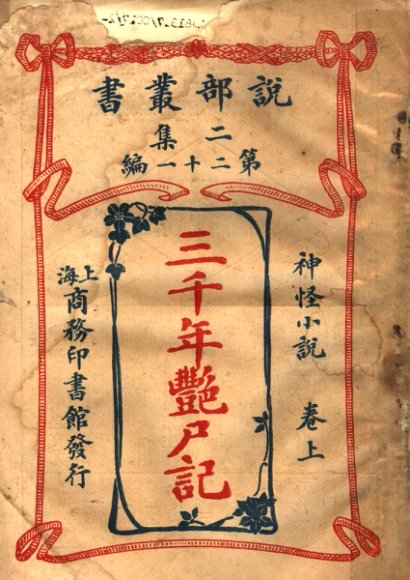 說部叢書
二集
第二十一編
神怪小說 卷上
三千年豔尸記
上海商務印書館發行